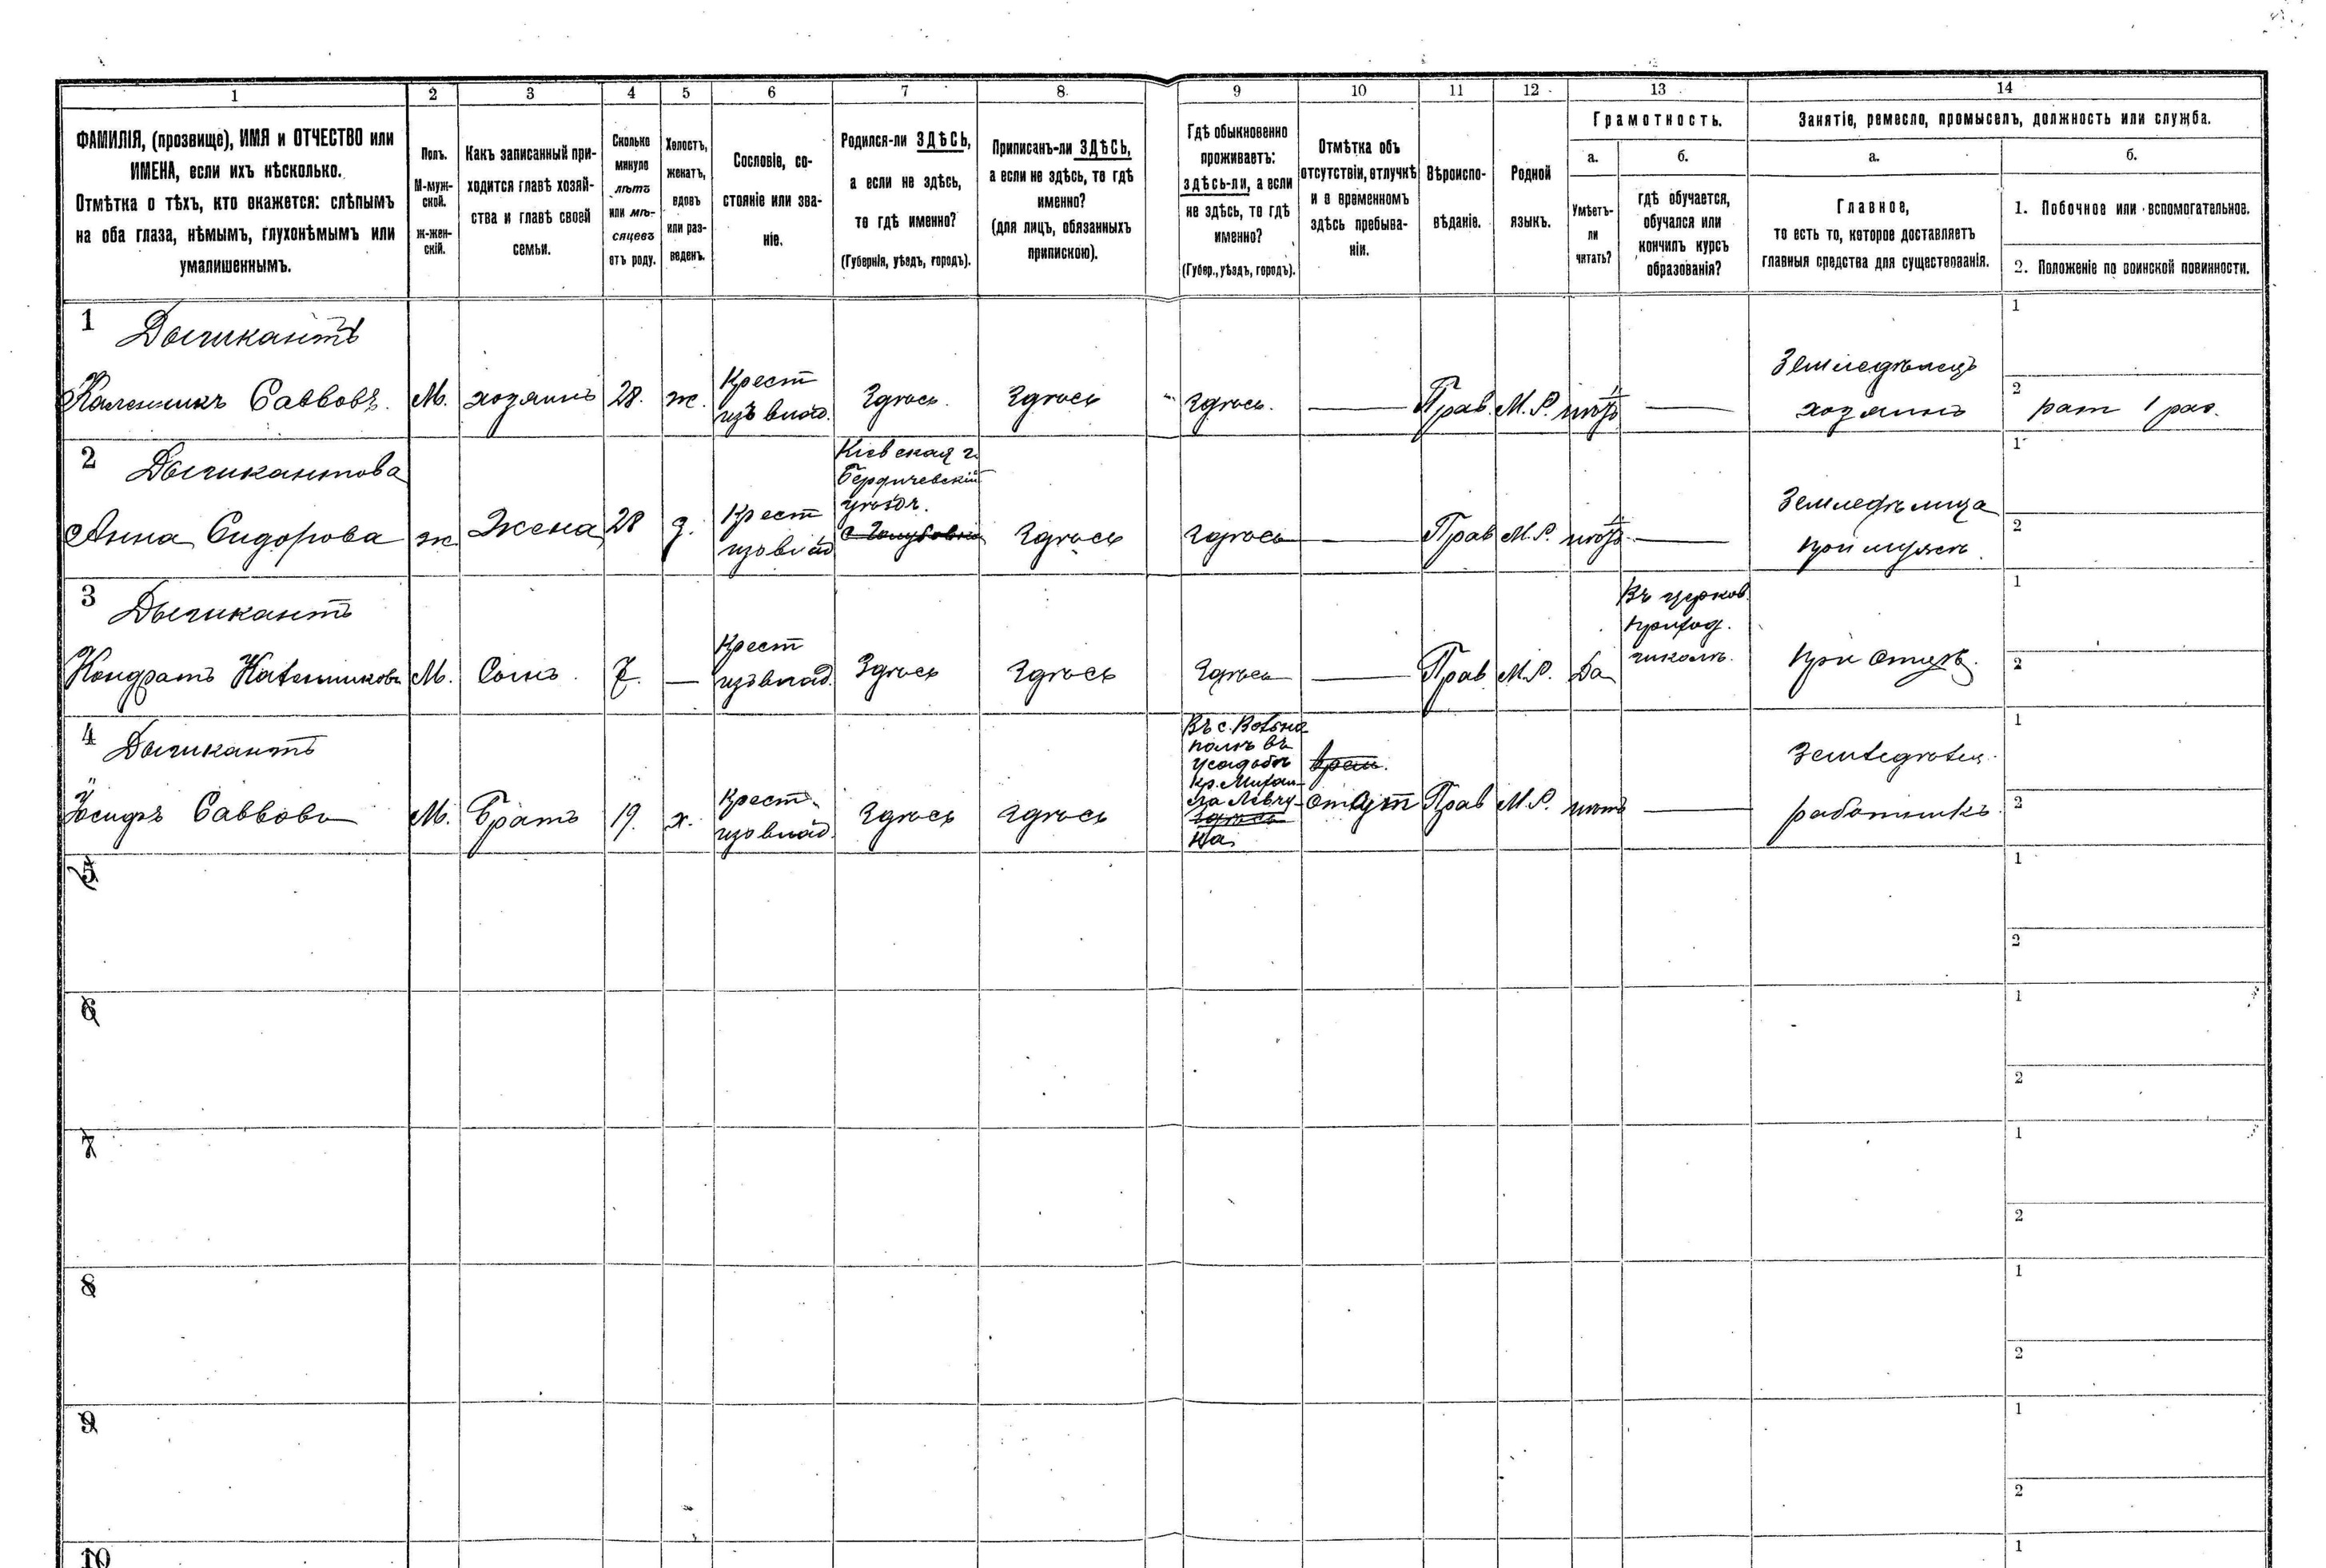 1
2
3
4
5
6
7
8
9
10
11
12
13
14
ФАМИЛІЯ, (прозвище), ИМЯ и ОТЧЕСТВО или
ИМЕНА, если ихъ нѣсколько.
Отмѣтка о тѣхъ, кто окажется: слѣпымъ
на оба глаза, нѣмымъ, глухонѣмымъ или
умалишеннымъ.
Полъ.
М-муж-
ской.
ж-жен-
скій.
Какъ записанный при-
ходится главѣ хозяй-
ства и главѣ своей
семьи.
Сколько
минуло
лѣтъ
или мѣ-
сяцевъ
отъ роду.
Холостъ,
женатъ,
вдовъ
или раз-
веденъ.
Сословіе, со-
стояніе или зва-
ніе.
Родился-ли ЗДѢСЬ,
а если не здѣсь,
то гдѣ именно?
(Губернія, уѣздъ, городъ).
Приписанъ-ли ЗДѢСЬ,
а если не здѣсь, то гдѣ
именно?
(для лицъ, обязанныхъ
припискою).
Гдѣ обыкновенно
проживаетъ:
здѣсь-ли, а если
не здѣсь, то гдѣ
именно?
(Губер., уѣздъ, городъ).
Отмѣтка объ
отсутствіи, отлучкѣ
и о временномъ
здѣсь пребыва-
ніи.
Вѣроиспо-
вѣданіе.
Родной
языкъ.
Грамотность.
а.
Умѣетъ-
ли
читать?
б.
гдѣ обучается,
обучался или
кончилъ курсъ
образованія?
Занятіе, ремесло, промыселъ, должность или служба.
а.
Главное,
то есть то, которое доставляетъ
главныя средства для существованія.
б.
1. Побочное или вспомогательное.
2. Положеніе по воинской повинности.
1 Дычикантъ
Каленикъ Саввовъ.
М.
хозяинъ
28.
ж.
Крест
изъ влад.
Здѣсь.
Здѣсь
здѣсь.
Прав
М. Р.
нѣтъ
Земледѣлецъ
хозяинъ
1
2
рат 1 раз.
2 Дычикантова
Анна Сидорова
ж
Жена
28
з.
Крест
изъ влад
Кіевская г.
Бердичевскій
уѣздъ.
Здѣсь
Здѣсь
Прав
М. Р.
нѣтъ
Земледѣлица
при мужѣ.
1
2
3 Дычикантъ
Кондратъ Калениковъ
М.
Сынъ.
7.
Крест
изъ влад.
Здѣсь
Здѣсь
Здѣсь
Прав
М. Р.
Да
Въ церков.
приход.
школѣ.
При отцѣ.
1
2
4 Дычикантъ
Іосифъ Саввовъ
М.
Братъ
19.
х.
Крест.
изъ влад.
Здѣсь
Здѣсь
усадьбѣ
кр. Михаи-
ла Левчу-
здѣсь
на
врем.
Прав
М. Р.
нѣтъ
Земледѣлец.
работникъ
1
2
5
1
2
6
1
2
7
1
2
8
1
2
9
1
2
10
1